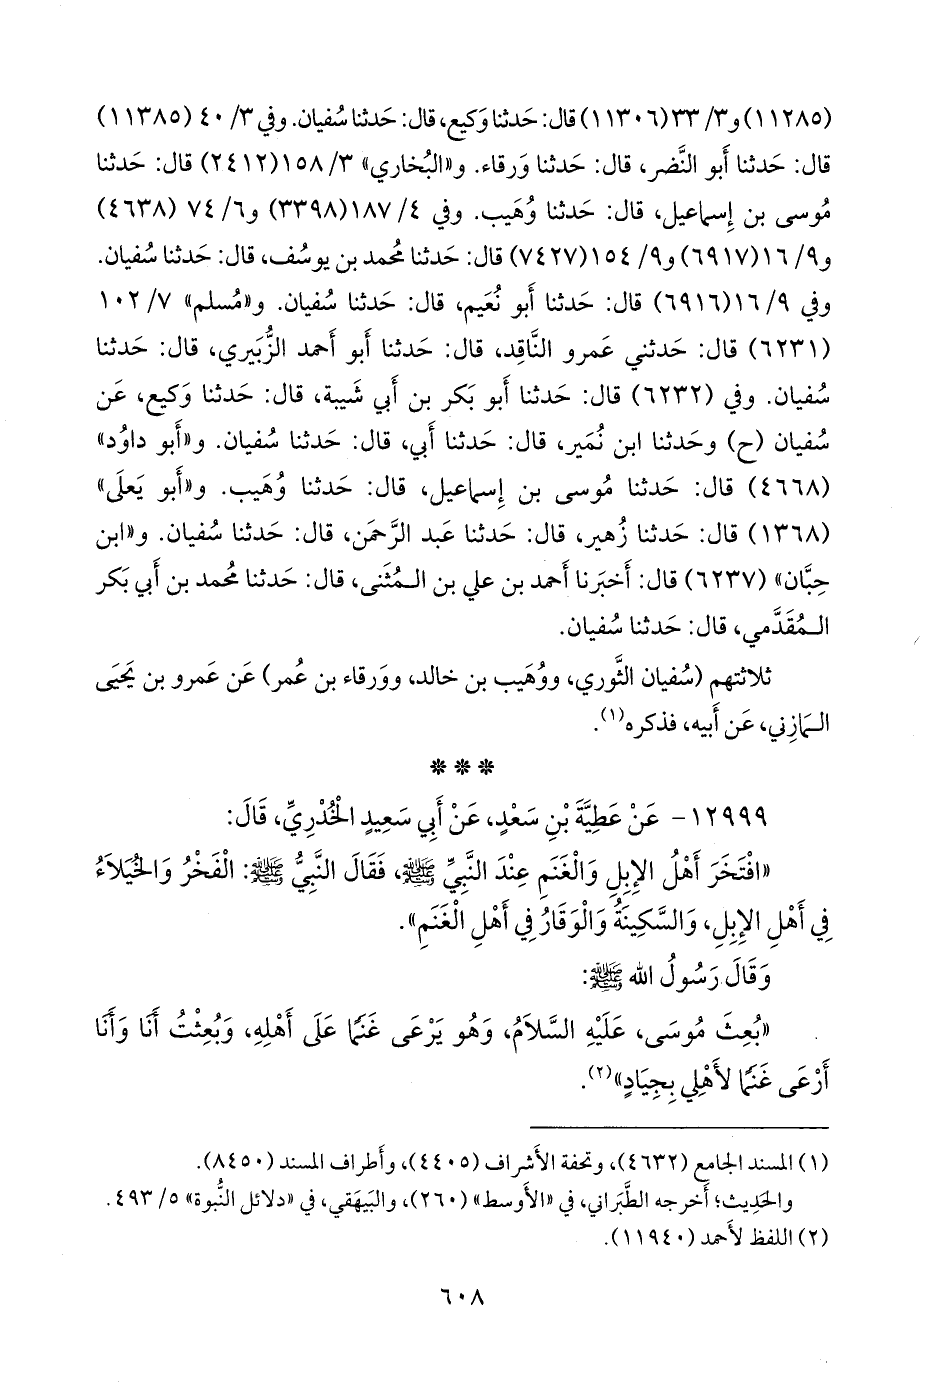 (١١٢٨٥) و٣/ ٣٣(١١٣٠٦) قال: حَدثنا وَكيع، قال: حَدثنا سُفيان. وفي ٣/ ٤٠ (١١٣٨٥)
قال: حَدثنا أَبو النَّضر، قال: حَدثنا وَرقاء. و«البُخاري» ٣/ ١٥٨(٢٤١٢) قال: حَدثنا
مُوسى بن إِسماعيل، قال: حَدثنا وُهَيب. وفي ٤/ ١٨٧(٣٣٩٨) و٦/ ٧٤ (٤٦٣٨)
و٩/ ١٦(٦٩١٧) و٩/ ١٥٤(٧٤٢٧) قال: حَدثنا محُمد بن يوسُف، قال: حَدثنا سُفيان.
وفي ٩/ ١٦(٦٩١٦) قال: حَدثنا أَبو نُعَيم، قال: حَدثنا سُفيان. و«مُسلم» ٧/ ١٠٢
(٦٢٣١) قال: حَدثني عَمرو النَّاقِد، قال: حَدثنا أَبو أَحمد الزُّبَيري، قال: حَدثنا
سُفيان. وفي (٦٢٣٢) قال: حَدثنا أَبو بَكر بن أَبي شَيبة، قال: حَدثنا وَكيع، عَن
سُفيان (ح) وحَدثنا ابن نُمَير، قال: حَدثنا أَبي، قال: حَدثنا سُفيان. و«أَبو داوُد»
(٤٦٦٨) قال: حَدثنا مُوسى بن إِسماعيل، قال: حَدثنا وُهَيب. و«أَبو يَعلَى»
(١٣٦٨) قال: حَدثنا زُهير، قال: حَدثنا عَبد الرَّحمَن، قال: حَدثنا سُفيان. و«ابن
حِبَّان» (٦٢٣٧) قال: أَخبَرنا أَحمد بن علي بن الـمُثَنى، قال: حَدثنا محُمد بن أَبي بَكر
الـمُقَدَّمي، قال: حَدثنا سُفيان.
ثلاثتهم (سُفيان الثَّوري، ووُهَيب بن خالد، ووَرقاء بن عُمر) عَن عَمرو بن يَحيَى
الـمازِني، عَن أَبيه، فذكره(١).
* * *
١٢٩٩٩- عَنْ عَطِيَّةَ بْنِ سَعْدٍ، عَنْ أَبِي سَعِيدٍ الْخُدْرِيِّ، قَالَ:
«افْتَخَرَ أَهْلُ الإِبِلِ وَالْغَنَمِ عِنْدَ النَّبِيِّ ﷺ، فَقَالَ النَّبِيُّ ﷺ: الْفَخْرُ وَالْخُيَلاَءُ
فِي أَهْلِ الإِبِلِ، وَالسَّكِينَةُ وَالْوَقَارُ فِي أَهْلِ الْغَنَمِ».
وَقَالَ رَسُولُ الله ﷺ:
«بُعِثَ مُوسَى، عَلَيْهِ السَّلاَمُ، وَهُو يَرْعَى غَنَمًا عَلَى أَهْلِهِ، وَبُعِثْتُ أَنَا وَأَنَا
أَرْعَى غَنَمًا لأَهْلِي بِجِيَادٍ»(٢).
(١) المسند الجامع (٤٦٣٢)، وتحفة الأشراف (٤٤٠٥)، وأطراف المسند (٨٤٥٠).
والحَدِيث؛ أَخرجه الطَّبَراني، في «الأَوسط» (٢٦٠)، والبَيهَقي، في «دلائل النُّبوة» ٥/ ٤٩٣.
(٢) اللفظ لأَحمد (١١٩٤٠).
٦٠٨